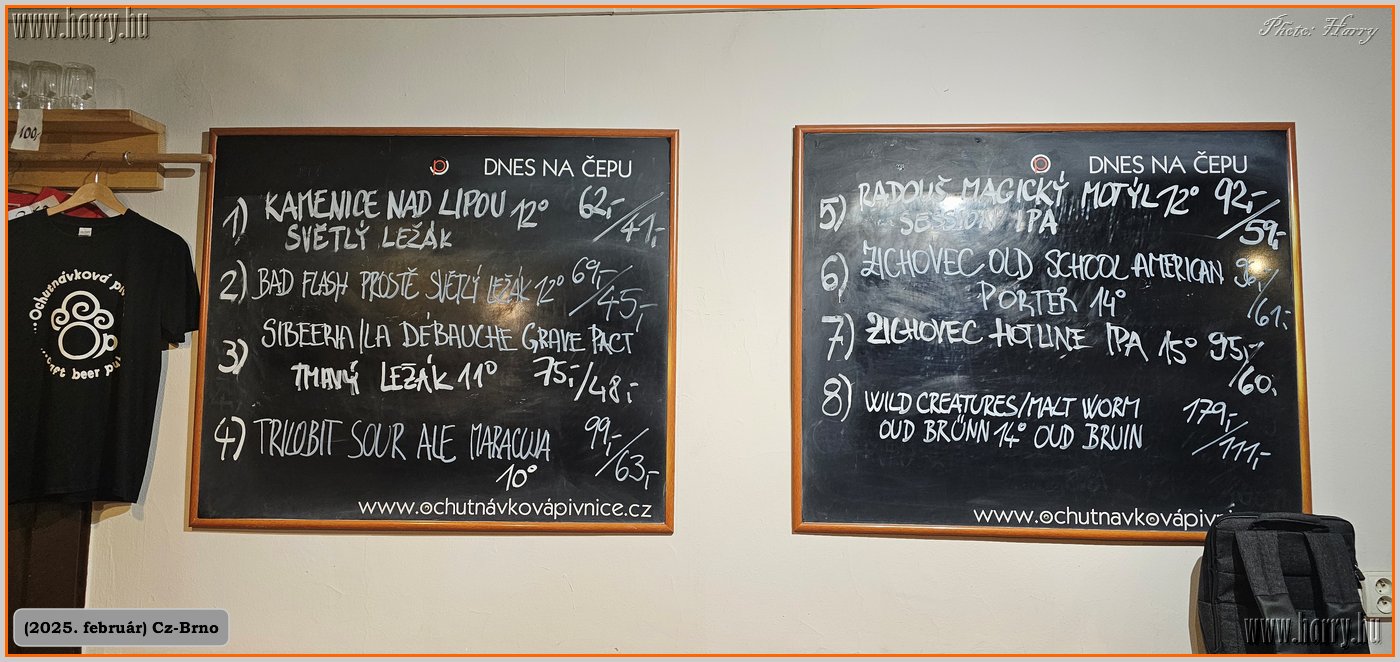 www.harry.hu
Photo: Harry
100,-
...Ochutnávková pi
...aft beer pub
DNES NA ČEPU
1) KAMENICE NAD LIPOU 12° 62,-/41,-
SVĚTLÝ LEŽÁK
2) BAD FLASH PROSTĚ SVĚTLÝ LEŽÁK 12° 69,-/45,-
3) SIBEERIA/LA DÉBAUCHE GRAVE PACT
TMAVÝ LEŽÁK 11° 75,-/48,-
4) TRILOBIT SOUR ALE MARACUJA 99,-/63,-
10°
www.ochutnávkovápivnice.cz
DNES NA ČEPU
5) RADOUŠ MAGICKÝ MOTÝL 12° 92,-/59,-
SESSION IPA
6) ZICHOVEC OLD SCHOOL AMERICAN /61,-
PORTER 14°
7) ZICHOVEC HOTLINE IPA 15° 95,-/60,-
8) WILD CREATURES/MALT WORM 179,-/111,-
OUD BRÜNN 14° OUD BRUIN
www.ochutnavkovápivni
(2025. február) Cz-Brno
www.harry.hu